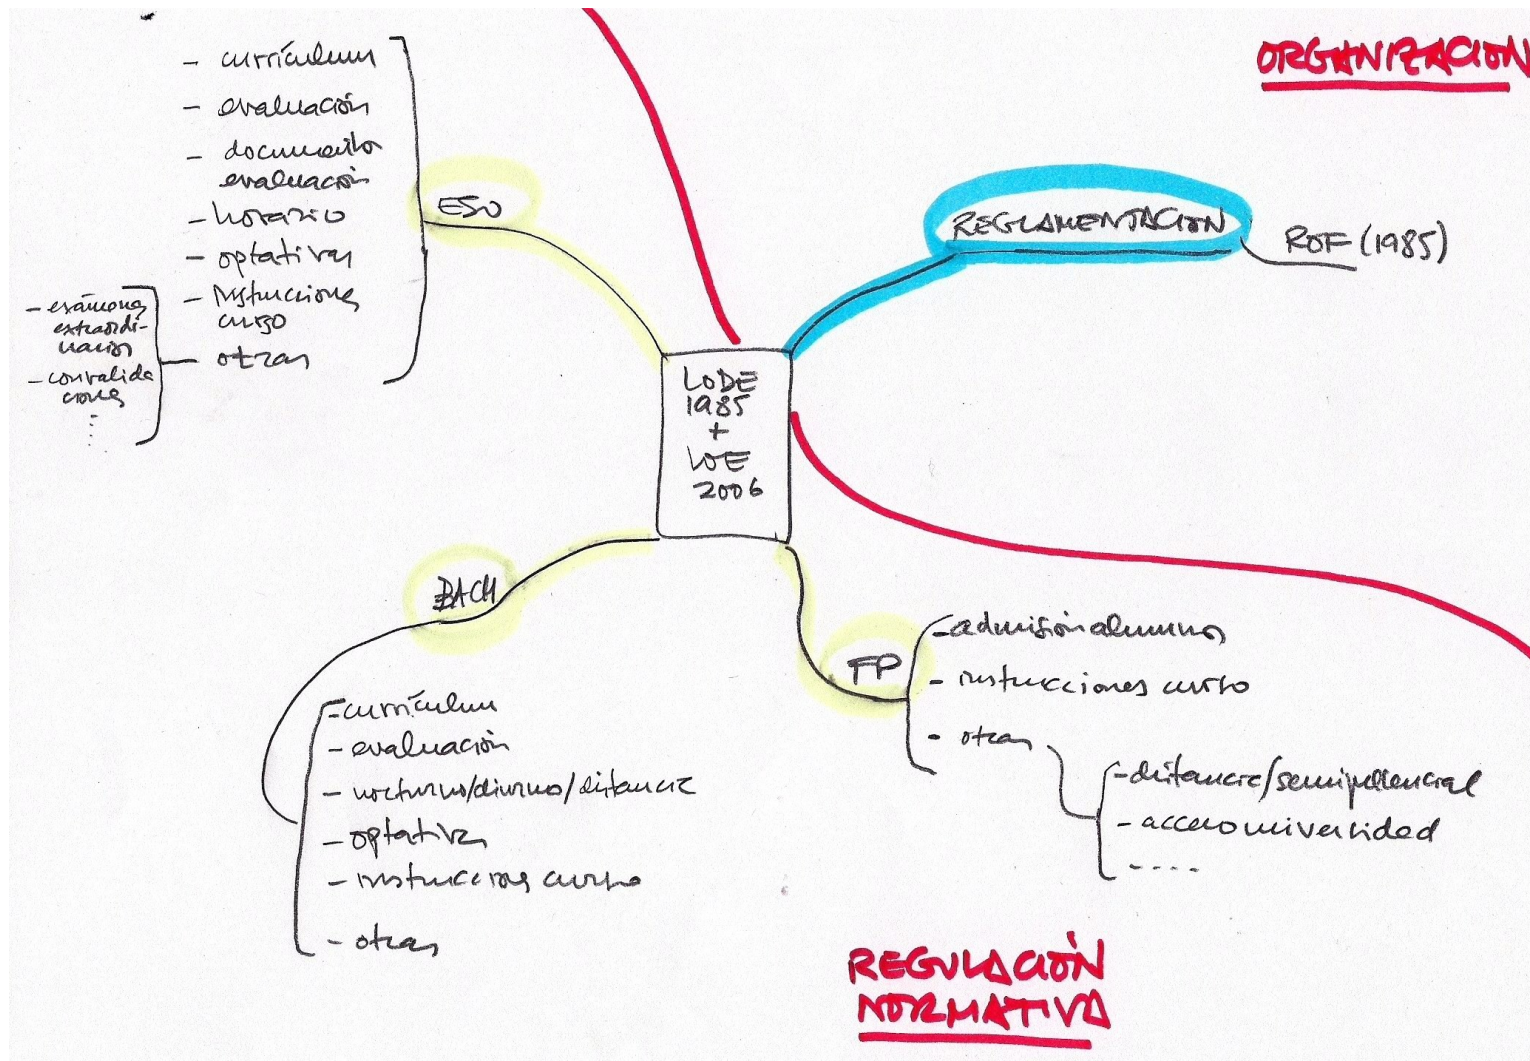 ORGANIZACION
- currículum
- evaluación
- documentos
evaluación
- horario
- optativas
- instrucciones
curso
- otras
- exámenes
extraordi-
narios
- convalida
ciones
ESO
REGLAMENTACION
ROF (1985)
LODE
1985
+
LOE
2006
BACH
- currículum
- evaluación
- nocturno/diurno/distancia
- optativas
- instrucciones curso
- otras
FP
- admisión alumnos
- instrucciones curso
- otras
- distancia/semipresencial
- acceso universidad
- - - -
REGULACIÓN
NORMATIVA